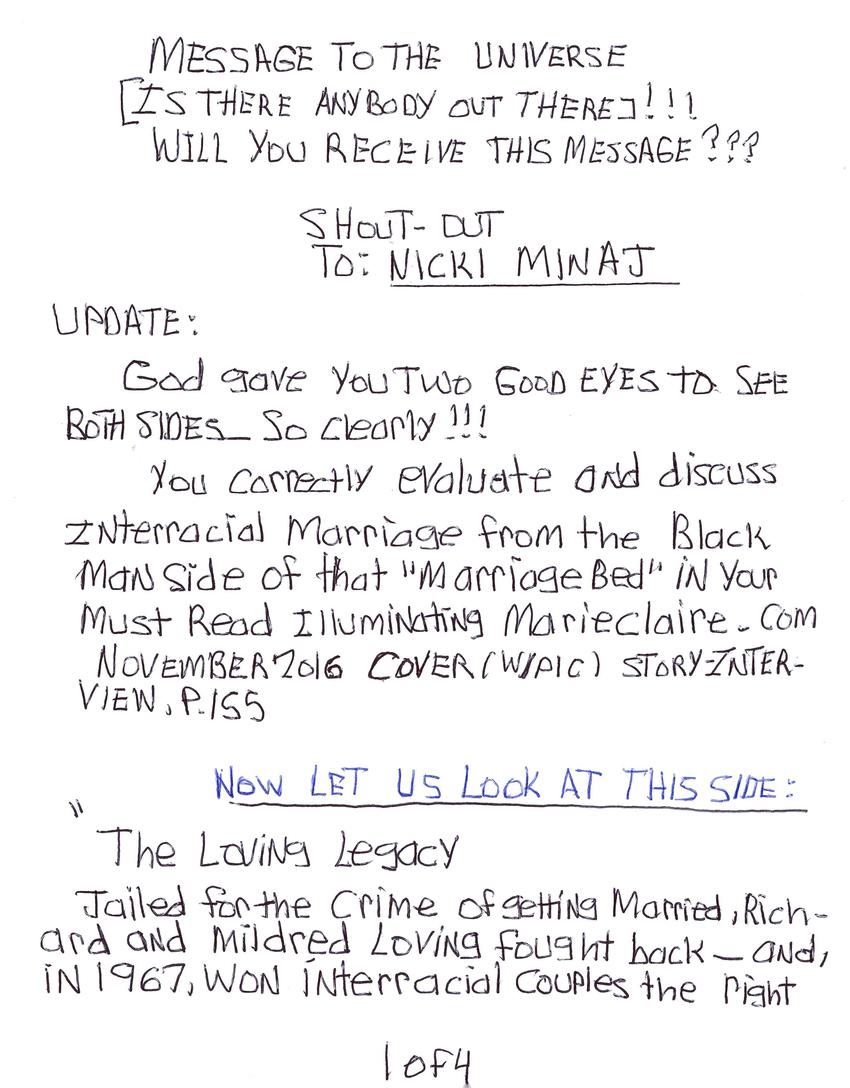 MESSAGE TO THE UNIVERSE
[IS THERE ANYBODY OUT THERE]!!!
WILL YOU RECEIVE THIS MESSAGE???
SHOUT-OUT
TO: NICKI MINAJ
UPDATE:
God gave YOU TWO GOOD EYES TO SEE
BOTH SIDES_ So Clearly!!!
You Correctly evaluate and discuss
INterracial Marriage from the Black
MaN Side of that "Marriage Bed" iN Your
Must Read IlluMiNating Marieclaire.COM
NOVEMBER 2016 COVER (W/PIC) STORY-INTER-
VIEW, P.155
NOW LET US LOOK AT THIS SIDE:
"
The Loving Legacy
Jailed for the Crime of getting Married, Rich-
ard and Mildred Loving fought back — and,
iN 1967, WON iNterracial Couples the Right
1 of 4